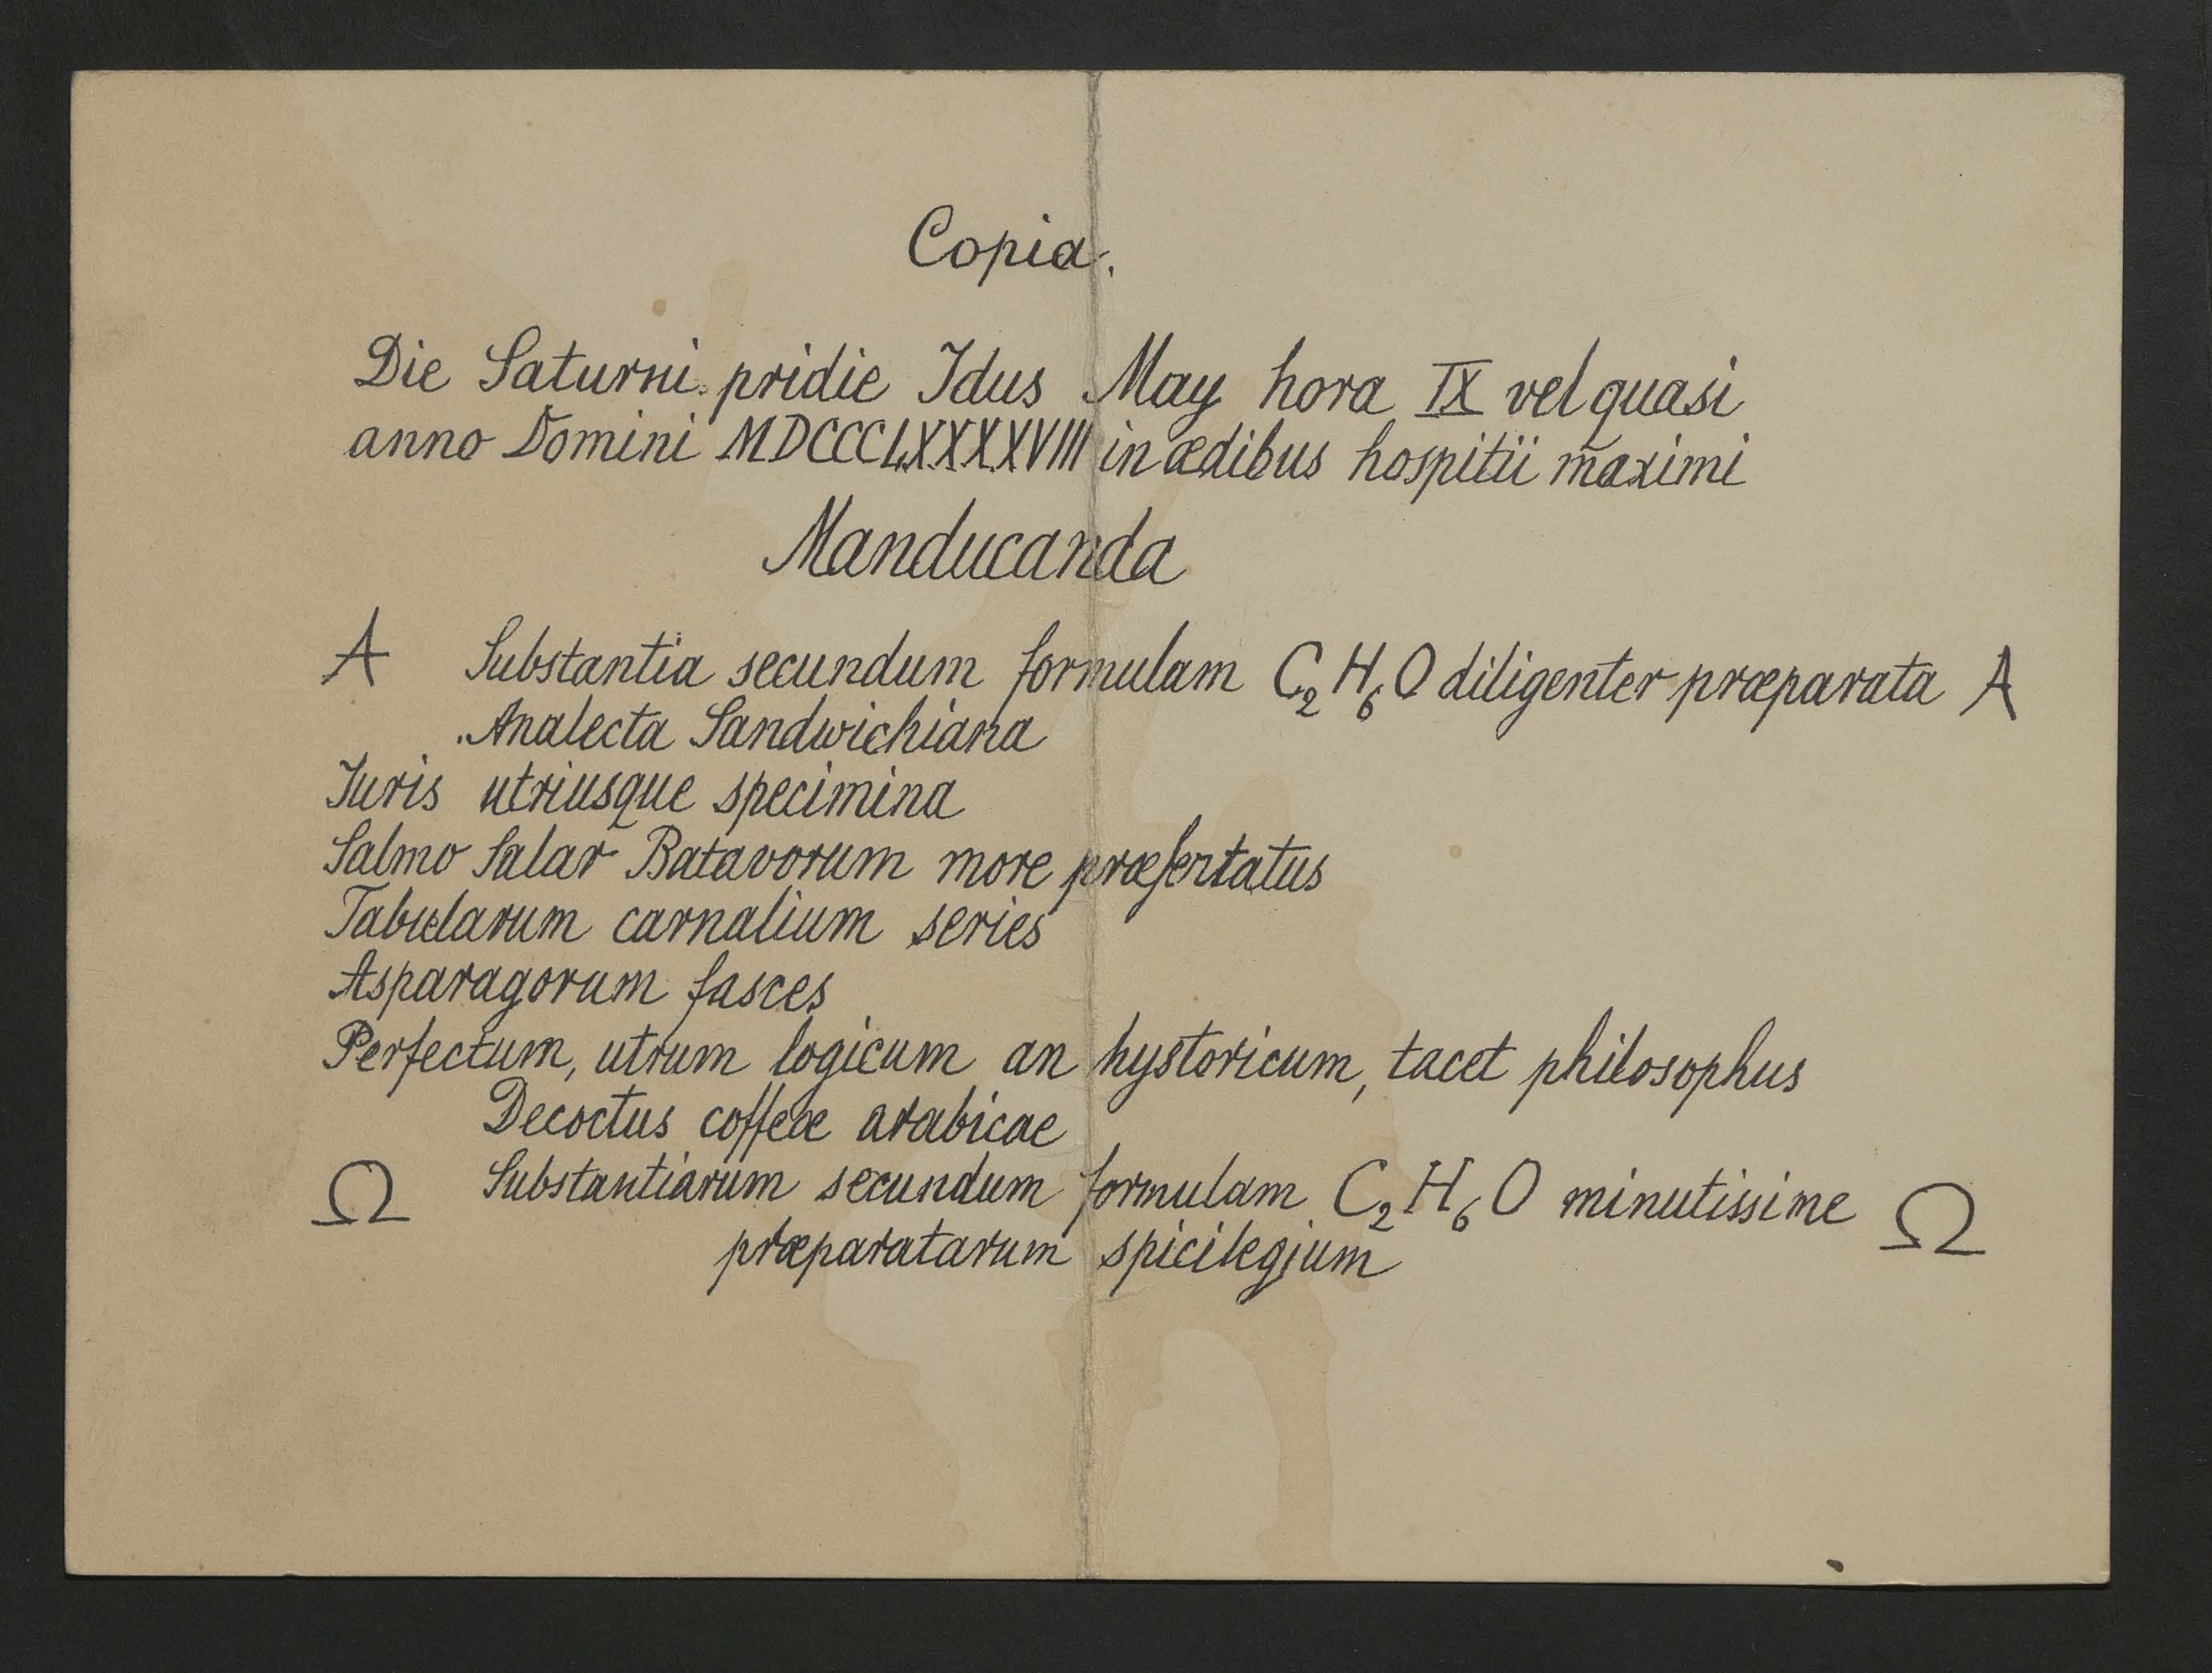 Copia.
Die Saturni pridie Idus May hora IX vel quasi
anno Domini MDCCCLXXXXVIII in ædibus hospitii maximi
Manducanda
A Substantia secundum formulam C₂H₆O diligenter præparata A
Analecta Sandwichiana
Iuris utriusque specimina
Salmo Salar Batavorum more præsentatus
Tabularum carnalium series
Asparagorum fasces
Perfectum, utrum logicum an hystoricum, tacet philosophus
Decoctus coffeæ arabicae
Ω Substantiarum secundum formulam C₂H₆O minutissime Ω
præparatarum spicilegium